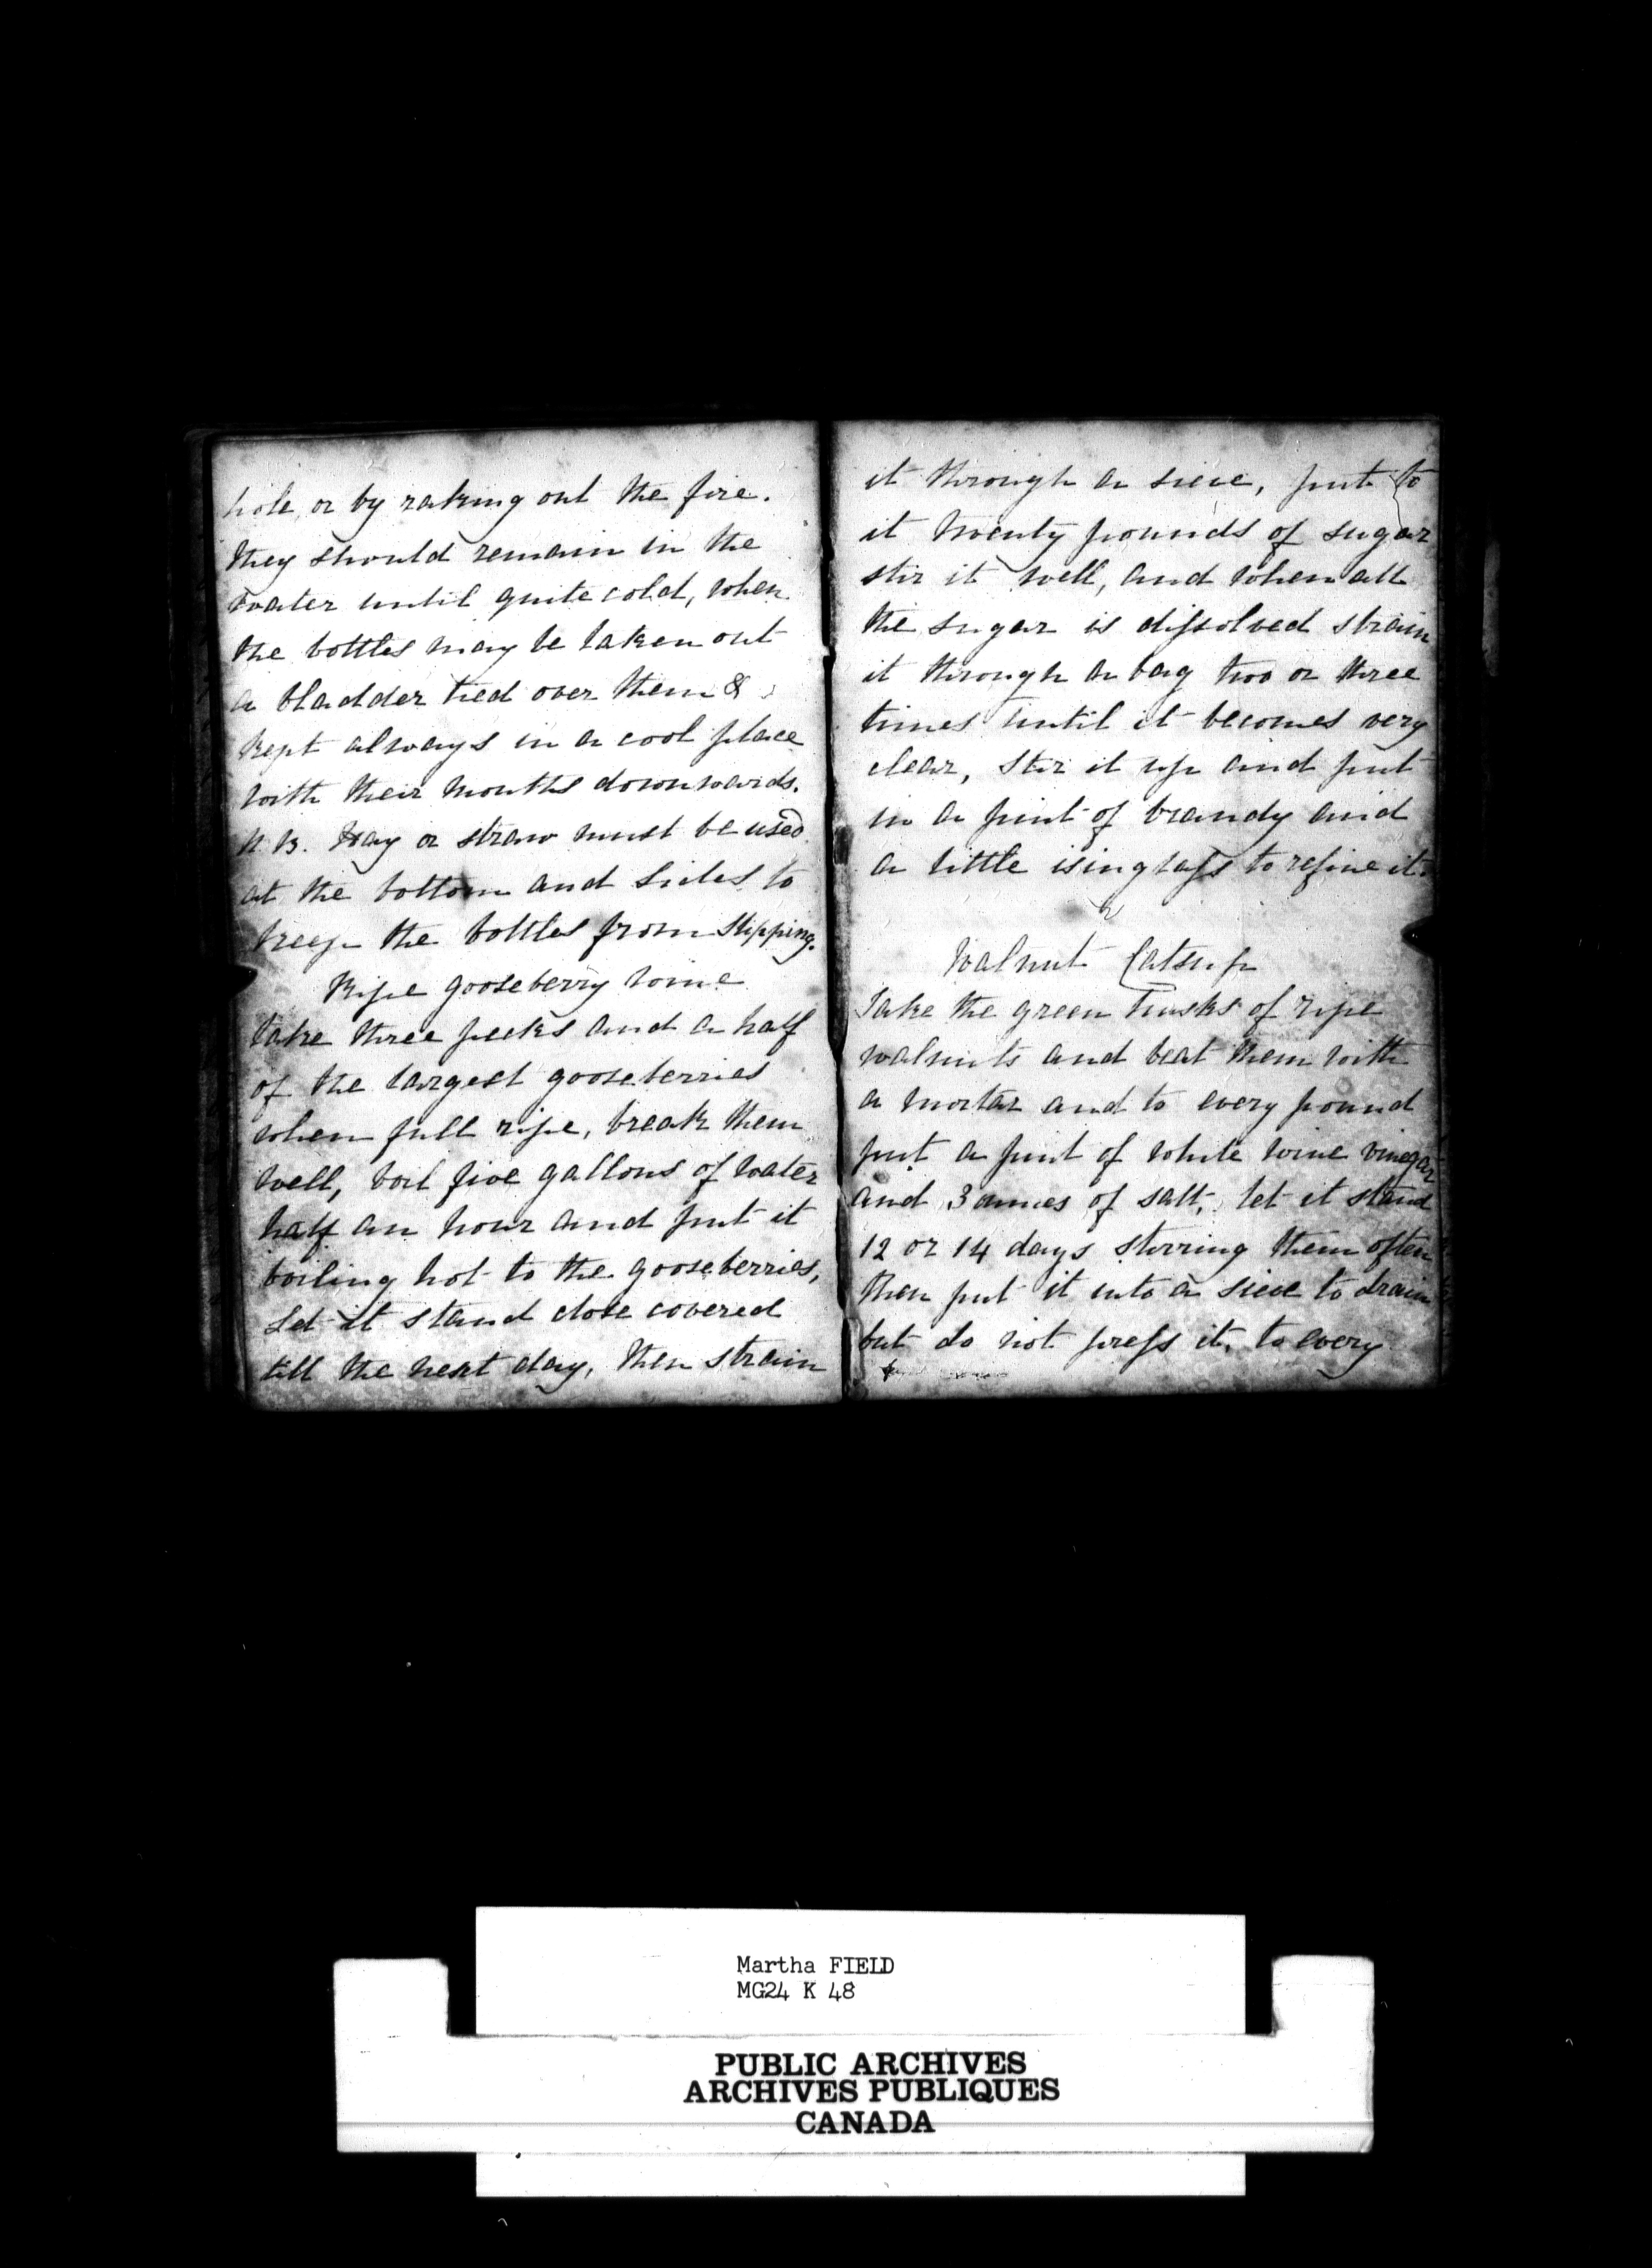 hole, or by raking out the fire.
they should remain in the
water until quite cold, when
the bottles may be taken out
a bladder tied over them &
kept always in a cool place
with their mouths downwards.
N.B. Hay or straw must be used
at the bottom and sides to
keep the bottles from slipping.
Ripe gooseberry wine
take three pecks and a half
of the largest gooseberries
when full ripe, break them
well, boil five gallons of water
half an hour and put it
boiling hot to the gooseberries,
Let it stand close covered
till the next day, then strain
it through a sieve, put to
it twenty pounds of sugar
stir it well, and when all
the sugar is dissolved strain
it through a bag two or three
times until it becomes very
clear, stir it up and put
in a pint of brandy and
a little isinglass to refine it.
Walnut Catsup
Take the green husks of ripe
walnuts and beat them with
a mortar and to every pound
put a pint of white wine vinegar
and 3 ounces of salt, let it stand
12 or 14 days stirring them often
then put it into a sieve to drain
but do not press it, to every
Martha FIELD
MG24 K 48
PUBLIC ARCHIVES
ARCHIVES PUBLIQUES
CANADA